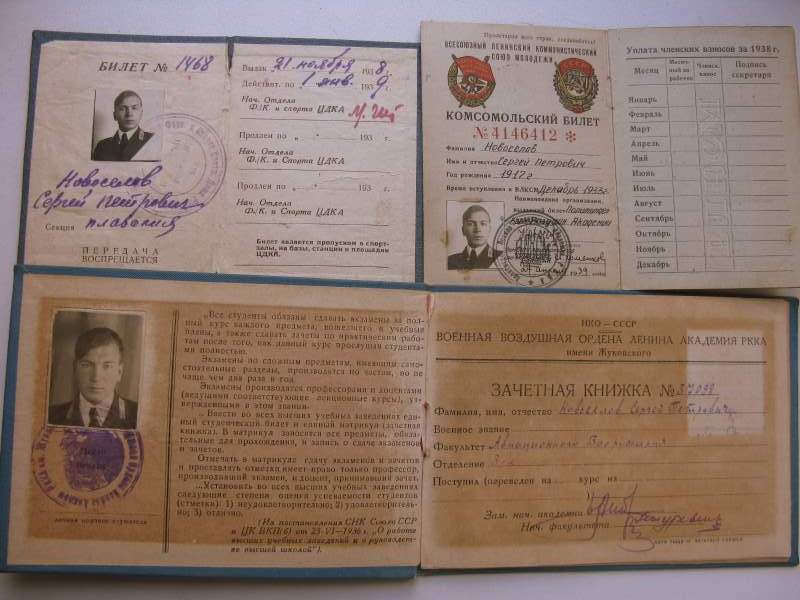 БИЛЕТ № 1468
Новоселов
Сергей Петрович
Секция плавания
ПЕРЕДАЧА
ВОСПРЕЩАЕТСЯ
Выдан 21 ноября 1938
Действит. по 1 янв. 1939
Нач. Отдела
Ф./К. и спорта ЦДКА
Продлен по „ “ 193
Нач. Отдела
Ф./К. и Спорта ЦДКА
Продлен по „ “ 193
Нач. Отдела
Ф./К. и Спорта ЦДКА
Билет является пропуском в спорт-
залы, на базы, станции и площадки
ЦДКА.
Пролетарии всех стран, соединяйтесь!
ВСЕСОЮЗНЫЙ ЛЕНИНСКИЙ КОММУНИСТИЧЕСКИЙ
СОЮЗ МОЛОДЕЖИ
КОМСОМОЛЬСКИЙ БИЛЕТ
№ 4146412
Фамилия Новоселов
Имя и отчество Сергей Петрович
Год рождения 1917 г.
Время вступления в ВЛКСМ Декабрь 1933 г.
Наименование организации,
выдавшей билет
Академии
1939
Уплата членских взносов за 1938 г.
Месяц
Месячный заработок
Членск. взнос
Подпись секретаря
Январь
Февраль
Март
Апрель
Май
Июнь
Июль
Август
Сентябрь
Октябрь
Ноябрь
Декабрь
„Все студенты обязаны сдавать экзамены за пол-
ный курс каждого предмета, вошедшего в учебные
планы, а также сдавать зачеты по практическим рабо-
там после того, как данный курс прослушан студента-
ми полностью.
Экзамены по сложным предметам, имеющим само-
стоятельные разделы, производятся по частям, но не
чаще чем два раза в год.
Экзамены производятся профессорами и доцентами
(ведущими соответствующие лекционные курсы), ут-
вержденными в этом звании.
„Ввести во всех высших учебных заведениях еди-
ный студенческий билет и единый матрикул (зачетная
книжка). В матрикул заносятся все предметы, обяза-
тельные для прохождения, и запись о сдаче экзаменов
и зачетов.
Отмечать в матрикуле сдачу экзаменов и зачетов
и проставлять отметки имеет право только профессор,
производивший экзамен, и доцент, принимавший зачет.
„Установить во всех высших учебных заведениях
следующие степени оценки успеваемости студентов
(отметка): 1) неудовлетворительно; 2) удовлетворитель-
но; 3) отлично.
(Из постановления СНК Союза ССР
и ЦК ВКП(б) от 23-VI—1936 г. „О работе
высших учебных заведений и о руководст-
ве высшей школой“).
личная подпись слушателя
НКО—СССР
ВОЕННАЯ ВОЗДУШНАЯ ОРДЕНА ЛЕНИНА АКАДЕМИЯ РККА
имени Жуковского
ЗАЧЕТНАЯ КНИЖКА №
Фамилия, имя, отчество Новоселов Сергей Петрович
Военное звание
Факультет Авиационного Вооружения
Отделение
Поступил (переведен на курс на
Зам. нач. академии
Нач. факультета